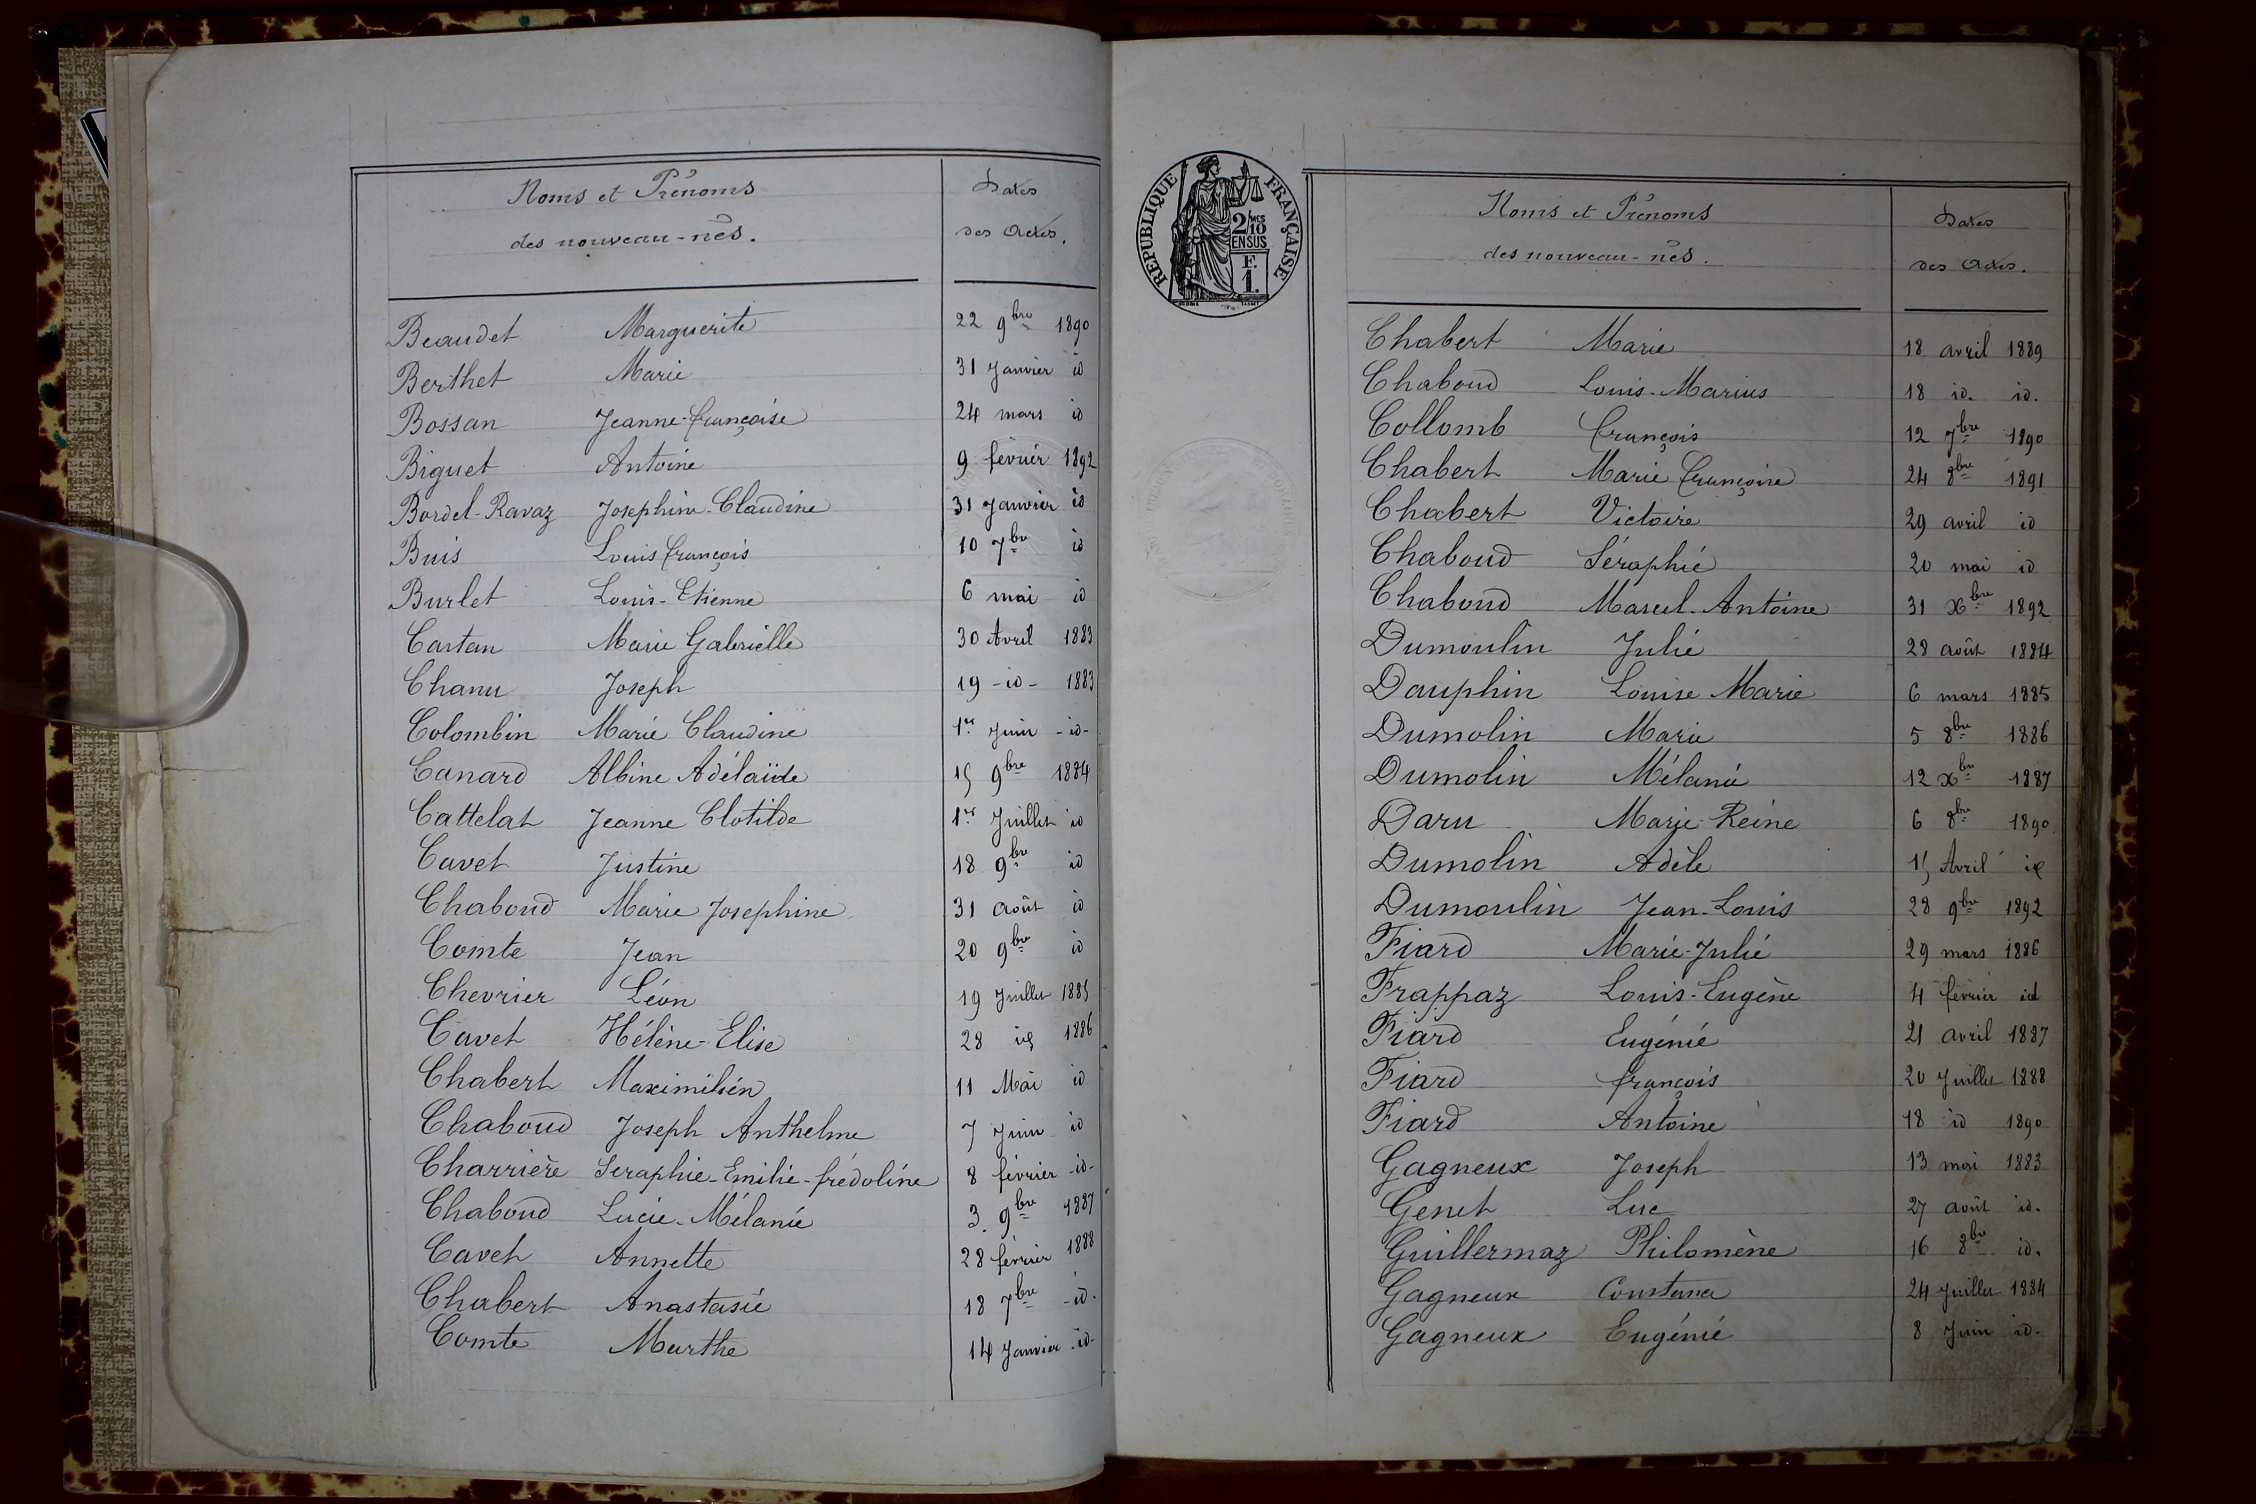 Noms et Prénoms
des nouveau-nés.
Dates
des Actes.
Beaudet Marguerite 22 9bre 1890
Berthet Marie 31 Janvier id
Bossan Jeanne-françoise 24 mars id
Biguet Antoine 9 février 1892
Bordel-Ravaz Josephine-Claudine 31 Janvier id
Buis Louis françois 10 7bre id
Burlet Louis-Etienne 6 mai id
Cartan Marie Gabrielle 30 Avril 1883
Chanu Joseph 19 -id- 1883
Colombin Marie Claudine 1er Juin -id-
Canard Albine Adélaïde 15 9bre 1884
Cattelat Jeanne Clotilde 1er Juillet id
Cavet Justine 18 9bre id
Chaboud Marie Josephine 31 Août id
Comte Jean 20 9bre id
Chevrier Léon 19 Juillet 1885
Cavet Hélène-Elise 28 id 1886
Chabert Maximilien 11 Mai id
Chaboud Joseph Anthelme 7 Juin id
Charrière Seraphie-Emilie-frédoline 8 février -id-
Chaboud Lucie-Mélanie 3. 9bre 1887
Cavet Annette 28 février 1888
Chabert Anastasie 18 7bre -id-
Comte Marthe 14 Janvier -id-
RÉPUBLIQUE FRANÇAISE
2/10 MES
EN SUS
F.
1.
Noms et Prénoms
des nouveau-nés.
Dates
des Actes.
Chabert Marie 18 avril 1889
Chaboud Louis-Marius 18 id. id.
Collomb françois 12 7bre 1890
Chabert Marie françoise 24 8bre 1891
Chabert Victoire 29 avril id
Chaboud Séraphie 20 mai id
Chaboud Marcel-Antoine 31 Xbre 1892
Dumoulin Julie 28 août 1884
Dauphin Louise Marie 6 mars 1885
Dumolin Marie 5 8bre 1886
Dumolin Mélanie 12 Xbre 1887
Daru Marie-Reine 6 8bre 1890
Dumolin Adèle 15 Avril id
Dumoulin Jean-Louis 28 9bre 1892
Fiard Marie-Julie 29 mars 1886
Frappaz Louis-Eugène 4 février id
Fiard Eugénie 21 avril 1887
Fiard françois 20 Juillet 1888
Fiard Antoine 18 id 1890
Gagneux Joseph 13 mai 1883
Genet Luc 27 août id.
Guillermaz Philomène 16 8bre id.
Gagneux Constance 24 Juillet 1884
Gagneux Eugénie 8 Juin id.